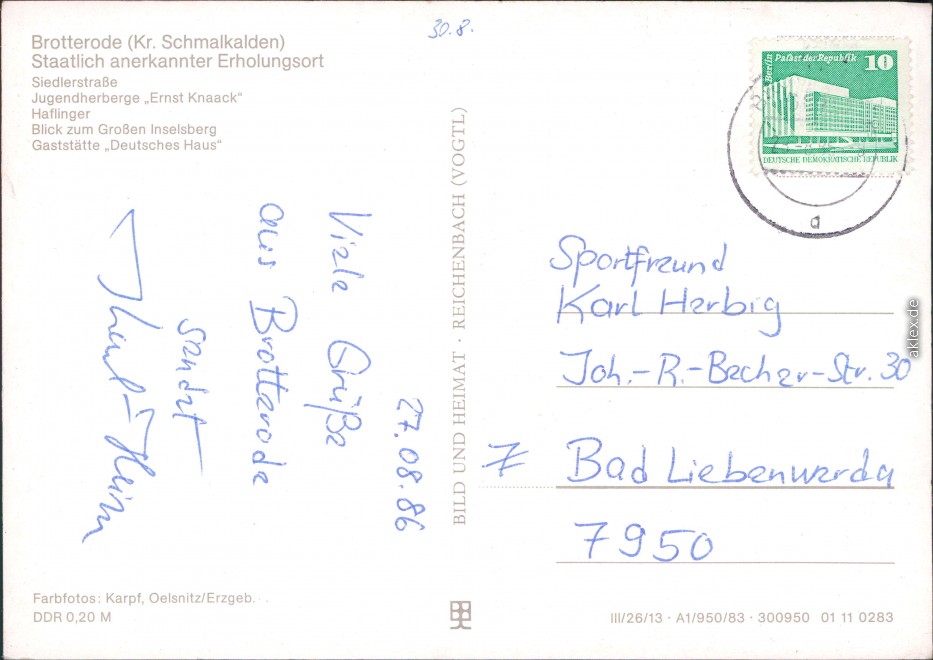 30.8.
Brotterode (Kr. Schmalkalden)
Staatlich anerkannter Erholungsort
Siedlerstraße
Jugendherberge „Ernst Knaack“
Haflinger
Blick zum Großen Inselsberg
Gaststätte „Deutsches Haus“
27.08.86
Viele Grüße
aus Brotterode
sendet
BILD UND HEIMAT · REICHENBACH (VOGTL)
Berlin Palast der Republik 10
DEUTSCHE DEMOKRATISCHE REPUBLIK
a
Sportfreund
Karl Herbig
Joh.-R.-Becher-Str. 30
7 Bad Liebenwerda
7950
Farbfotos: Karpf, Oelsnitz/Erzgeb.
DDR 0,20 M
III/26/13 · A1/950/83 · 300950 01 11 0283
aklex.de